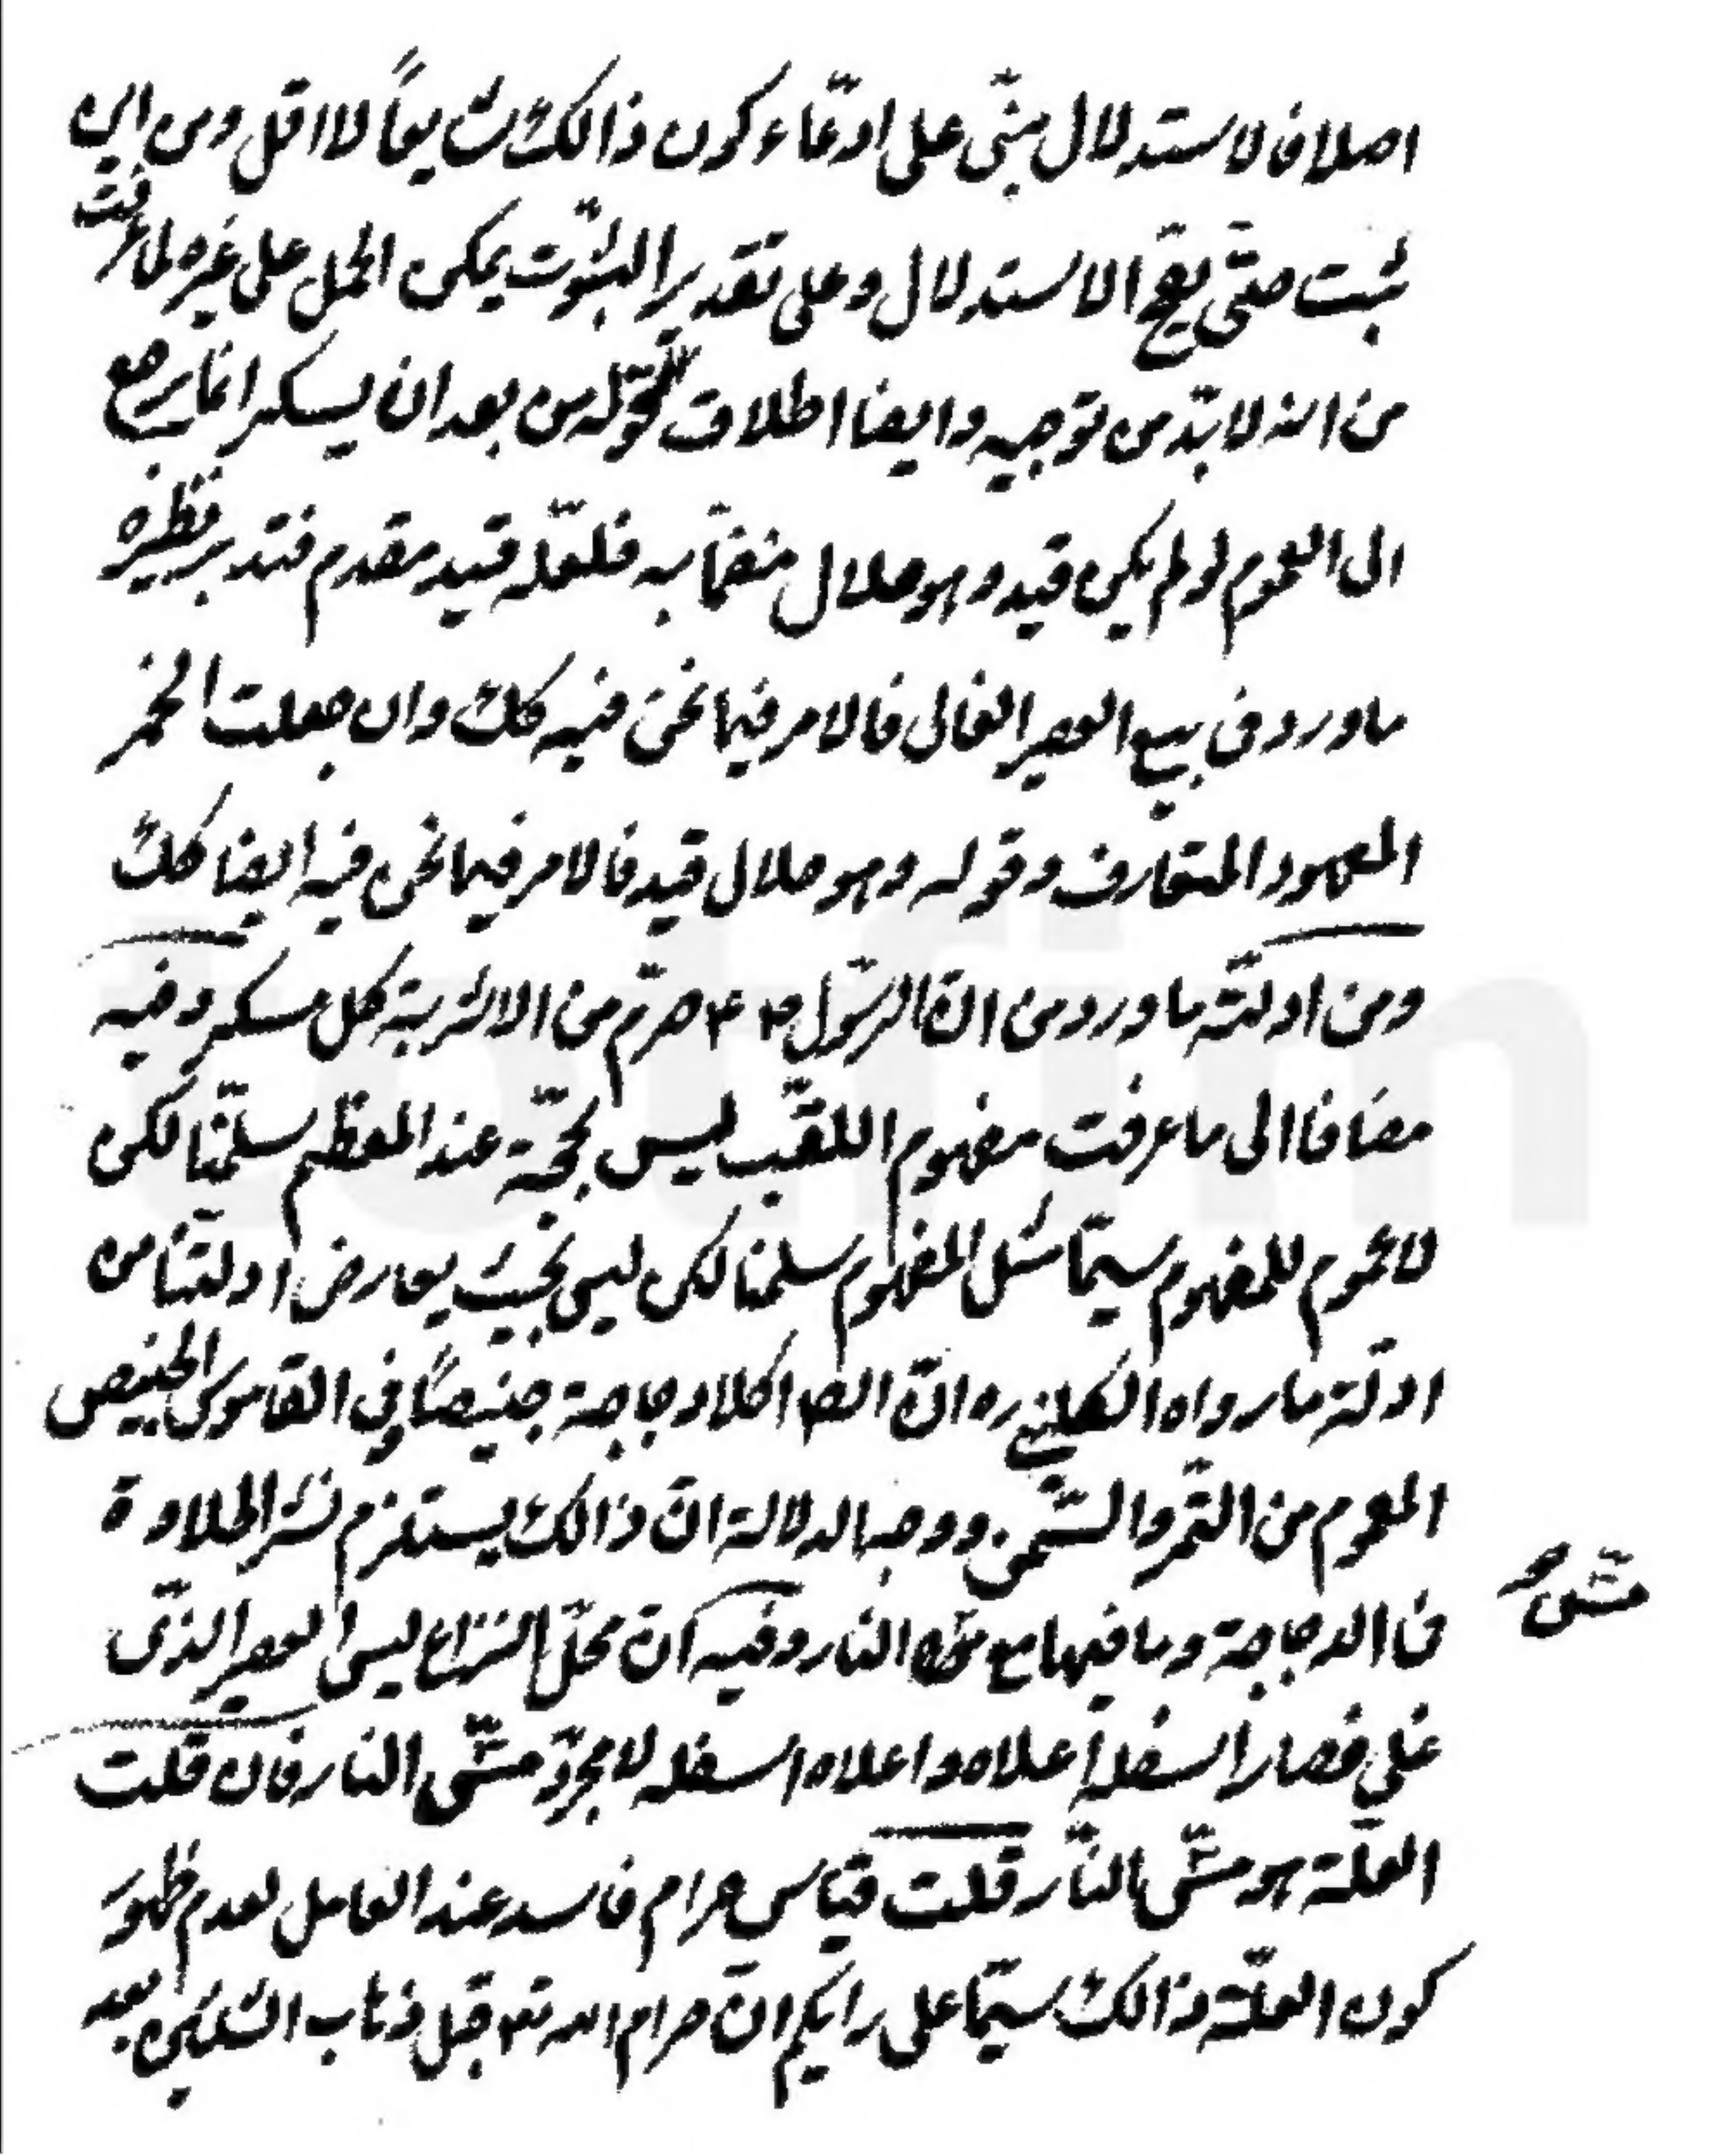 اصلا فالاستدلال مبنّى على ادّعاء كون ذالك شايعاً لا اقل ومن اين
ثبت حتّى يصحّ الاستدلال وعلى تقدير الثبوت يمكن الحمل على غيره لما عرفت
من انه لابدّ من توجيه وايضا اطلاق قوله من بعد ان يسكر انما يرجع
الى العموم لو لم يكن قيد وهو حلال منضمّا به فلعلّه قيد مقدم فتدبر نظيره
ما ورد فى بيع العصير الغالى فالامر فيما نحن فيه كك وان جعلت الخمر
المعهود المتعارف وقوله وهو حلال قيد فالامر فيما نحن فيه ايضا كك
ومن ادلّته ما ورد من انّ الرّسول ص حرّم من الاشربة كل مسكر وفيه
مضافا الى ما عرفت مفهوم اللقب ليس بحجّة عند المعظم سلّمنا لكن
لا عموم للمفهوم سيّما مثل المفهوم سلمنا لكن ليس بحيث يعارض ادلّتنا من
ادلّة ما رواه الكلينى ره انّ الص اكلا دجاجة خبيصاً وفى القاموس الخبيص
المعموم من التّمر والسّمن ووجه الدلالة انّ ذالك يستلزم نشر الحلاوة
فى الدجاجة وما فيها مع النار وفيه انّ محلّ النزاع ليس العصير الذّى
غلى فصار اسفله اعلاه واعلاه اسفله لا مجرّد مسّى النار فان قلت
العلّة هو مسّى النّار قلت قياس حرام فاسد عند العامل لعدم ظهور
كون العلّة ذالك سيّما على رايكم انّ حرام الله تع قبل ذهاب الثلثين بعد